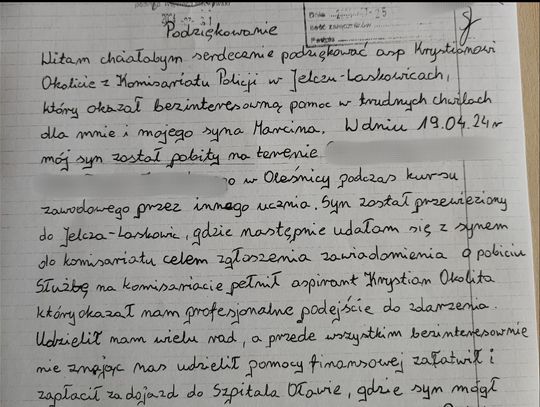 Podziękowanie
Witam chciałabym serdecznie podziękować asp Krystianowi
Okolicie z Komisariatu Policji w Jelczu-Laskowicach,
który okazał bezinteresowną pomoc w trudnych chwilach
dla mnie i mojego syna Marcina. W dniu 19.04.24r
mój syn został pobity na terenie
w Oleśnicy podczas kursu
zawodowego przez innego ucznia. Syn został przewieziony
do Jelcza-Laskowic, gdzie następnie udałam się z synem
do komisariatu celem zgłoszenia zawiadomienia o pobiciu
Służbę na komisariacie pełnił aspirant Krystian Okolita
który okazał nam profesjonalne podejście do zdarzenia.
Udzielił nam wielu rad, a przede wszystkim bezinteresownie
nie znając nas udzielił pomocy finansowej załatwił i
zapłacił za dojazd do Szpitala Oławie, gdzie syn mógł